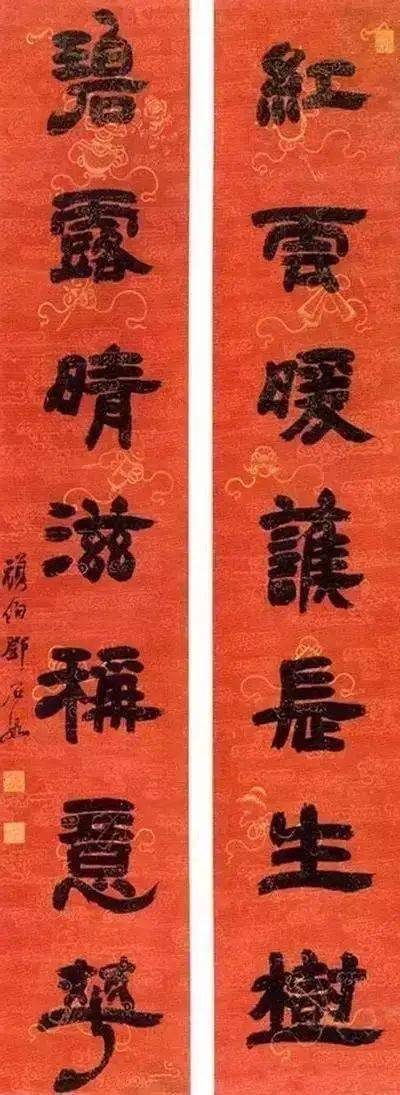 紅雲暖護長生樹
碧露晴滋稱意華
頑伯鄧石如